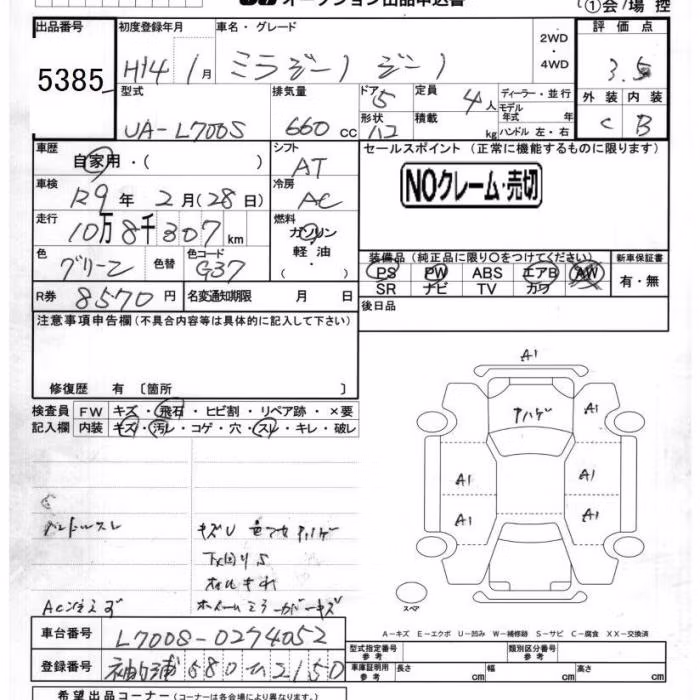 オークション出品申込書
①会場控
出品番号 初度登録年月 車名・グレード 2WD・4WD 評価点
5385 H14 1月 ミラジーノ ジーノ 3.5
型式 排気量 ドア 定員 ディーラー・並行 外装 内装
UA-L700S 660cc 5 4人 モデル年式 年 C B
形状 積載 kg ハンドル 左・右
車歴 シフト セールスポイント (正常に機能するものに限ります)
自家用・( ) AT
NOクレーム・売切
車検 冷房
R9年 2月(28日) AC
走行 燃料
10万8千307km ガソリン 軽油・
色 色替 色コード 装備品 (純正品に限り○をつけてください) 新車保証書
グリーン G37 PS PW ABS エアB AW 有・無
SR ナビ TV カワ
R券 8570円 名変通知期限 月 日
後日品
注意事項申告欄 (不具合内容等は具体的に記入して下さい)
修復歴 有 [箇所 ]
検査員 FW キズ・飛石・ヒビ割・リペア跡・×要
記入欄 内装 キズ・汚レ・コゲ・穴・スレ・キレ・破レ
A1
アハゲ A1
A1 A1
A1 A1
ハンドルスレ キズU
下回りS
ACガス
スペア
A-キズ E-エクボ U-凹み W-補修跡 S-サビ C-腐食 XX-交換済
車台番号 L700S-0274052
型式指定番号 参考 類別区分番号 参考
登録番号 袖ケ浦 580 ひ 2150
車庫証明用 参考 長さ cm 幅 cm 高さ cm
希望出品コーナー (コーナーは各会場により異なります。)